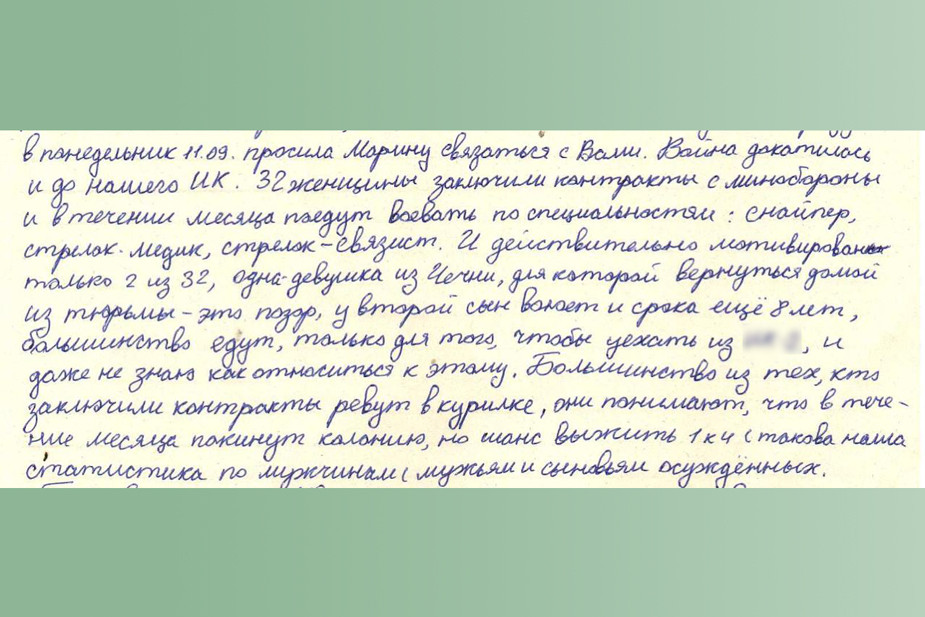 в понедельник 11.09. просила Марину связаться с Вами. Война докатилась
и до нашего ИК. 32 женщины заключили контракты с минобороны
и в течении месяца поедут воевать по специальностям: снайпер,
стрелок-медик, стрелок-связист. И действительно мотивирован
только 2 из 32, одна-девушка из Чечни, для которой вернуться домой
из тюрьмы - это позор, у второй сын воюет и срока ещё 8 лет,
большинство едут, только для того, чтобы уехать из , и
даже не знаю как относиться к этому. Большинство из тех, кто
заключили контракты ревут в курилке, они понимают, что в тече-
ние месяца покинут колонию, но шанс выжить 1 к 4 (такова наша
статистика по мужчинам (мужьям и сыновьям осуждённых.